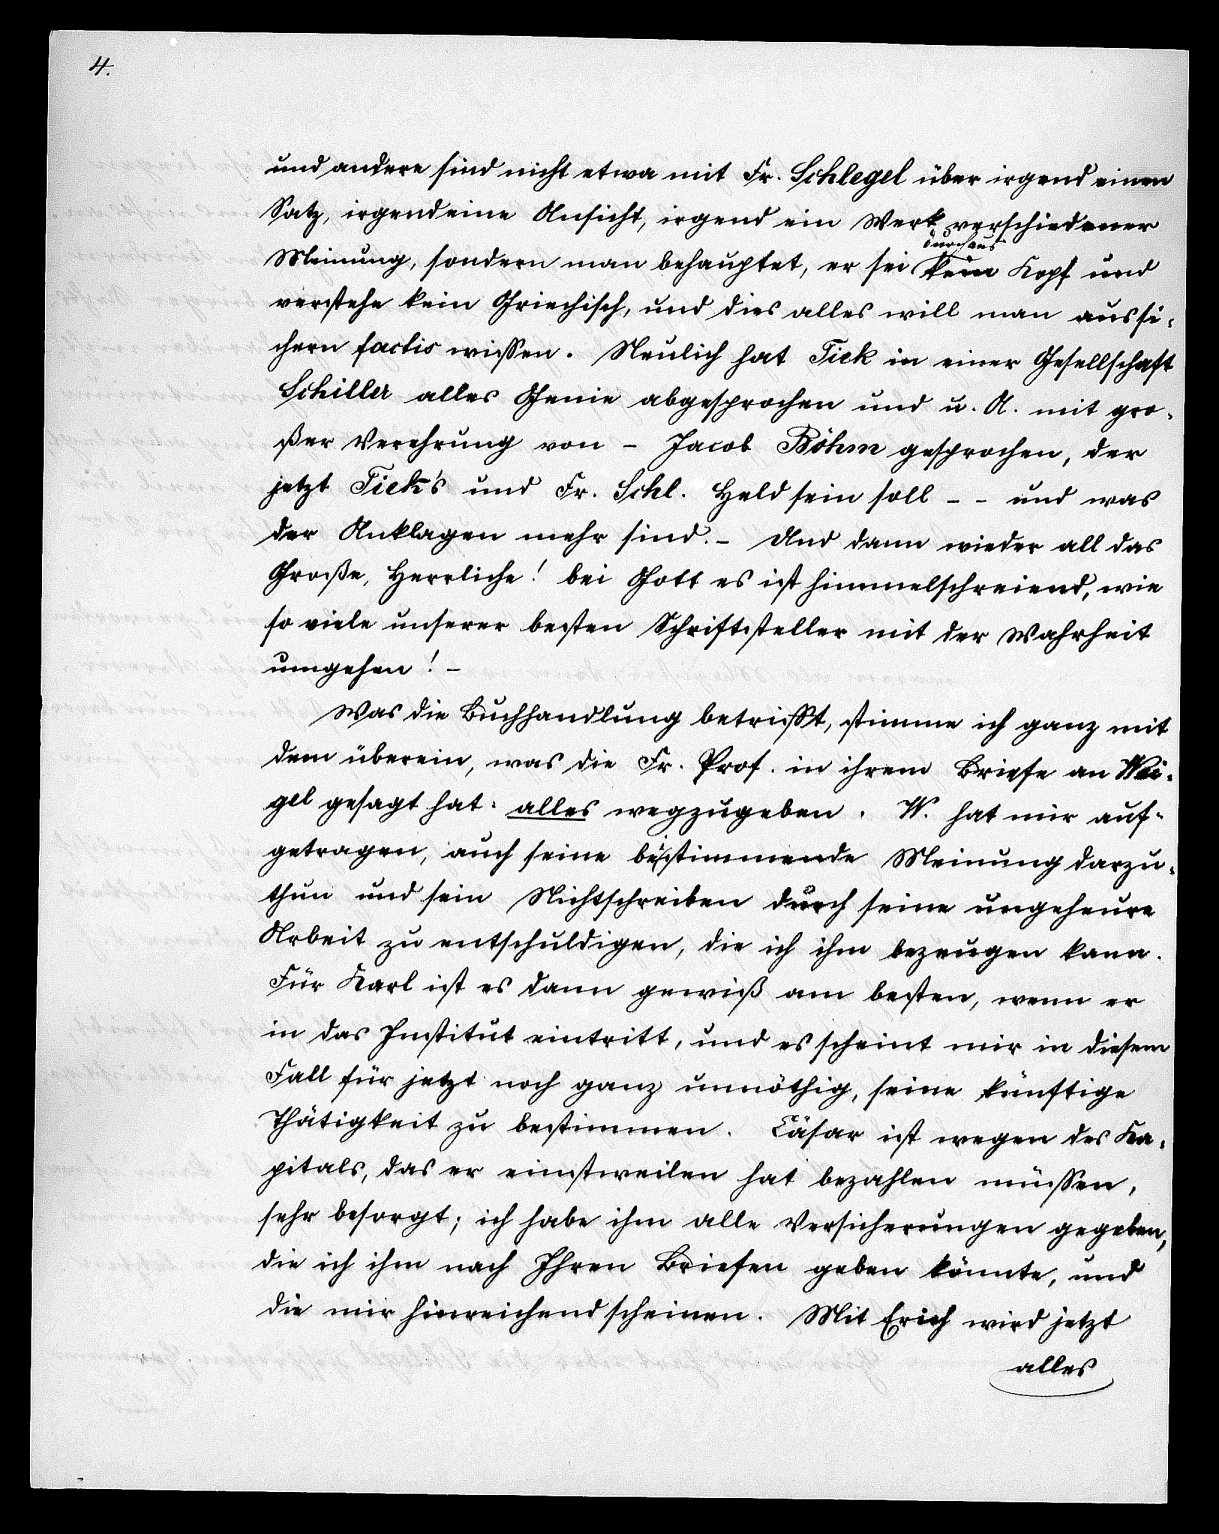 4.
und andere sind nicht etwa mit Fr. Schlegel über irgend einen
Satz, irgendeine Ansicht, irgend ein Werk verschiedener
durchaus
Meinung, sondern man behauptet, er sei kein Kopf und
verstehe kein Griechisch, und dies alles will man aus si-
chern factis wissen. Neulich hat Tiek in einer Gesellschaft
Schiller alles Genie abgesprochen und u. A. mit gro-
ßer Verehrung von - Jacob Böhm gesprochen, der
jetzt Tiek's und Fr. Schl. Held sein soll - - und was
der Anklagen mehr sind. - Und dann wieder all das
Große, Herrliche! bei Gott es ist himmelschreiend, wie
so viele unserer besten Schriftsteller mit der Wahrheit
umgehen! -
Was die Buchhandlung betrifft, stimme ich ganz mit
dem überein, was die Fr. Prof. in ihrem Briefe an Wei-
gel gesagt hat: alles wegzugeben. W. hat mir auf-
getragen, auch seine beistimmende Meinung darzu-
thun und sein Nichtschreiben durch seine ungeheure
Arbeit zu entschuldigen, die ich ihm bezeugen kann.
Für Karl ist es dann gewiß am besten, wenn er
in das Institut eintritt, und es scheint mir in diesem
Fall für jetzt noch ganz unnöthig, seine künftige
Thätigkeit zu bestimmen. Cäsar ist wegen des Ka-
pitals, das er einstweilen hat bezahlen müssen,
sehr besorgt; ich habe ihm alle Versicherungen gegeben,
die ich ihm nach Ihren Briefen geben könnte, und
die mir hinreichend scheinen. Mit Erich wird jetzt
alles